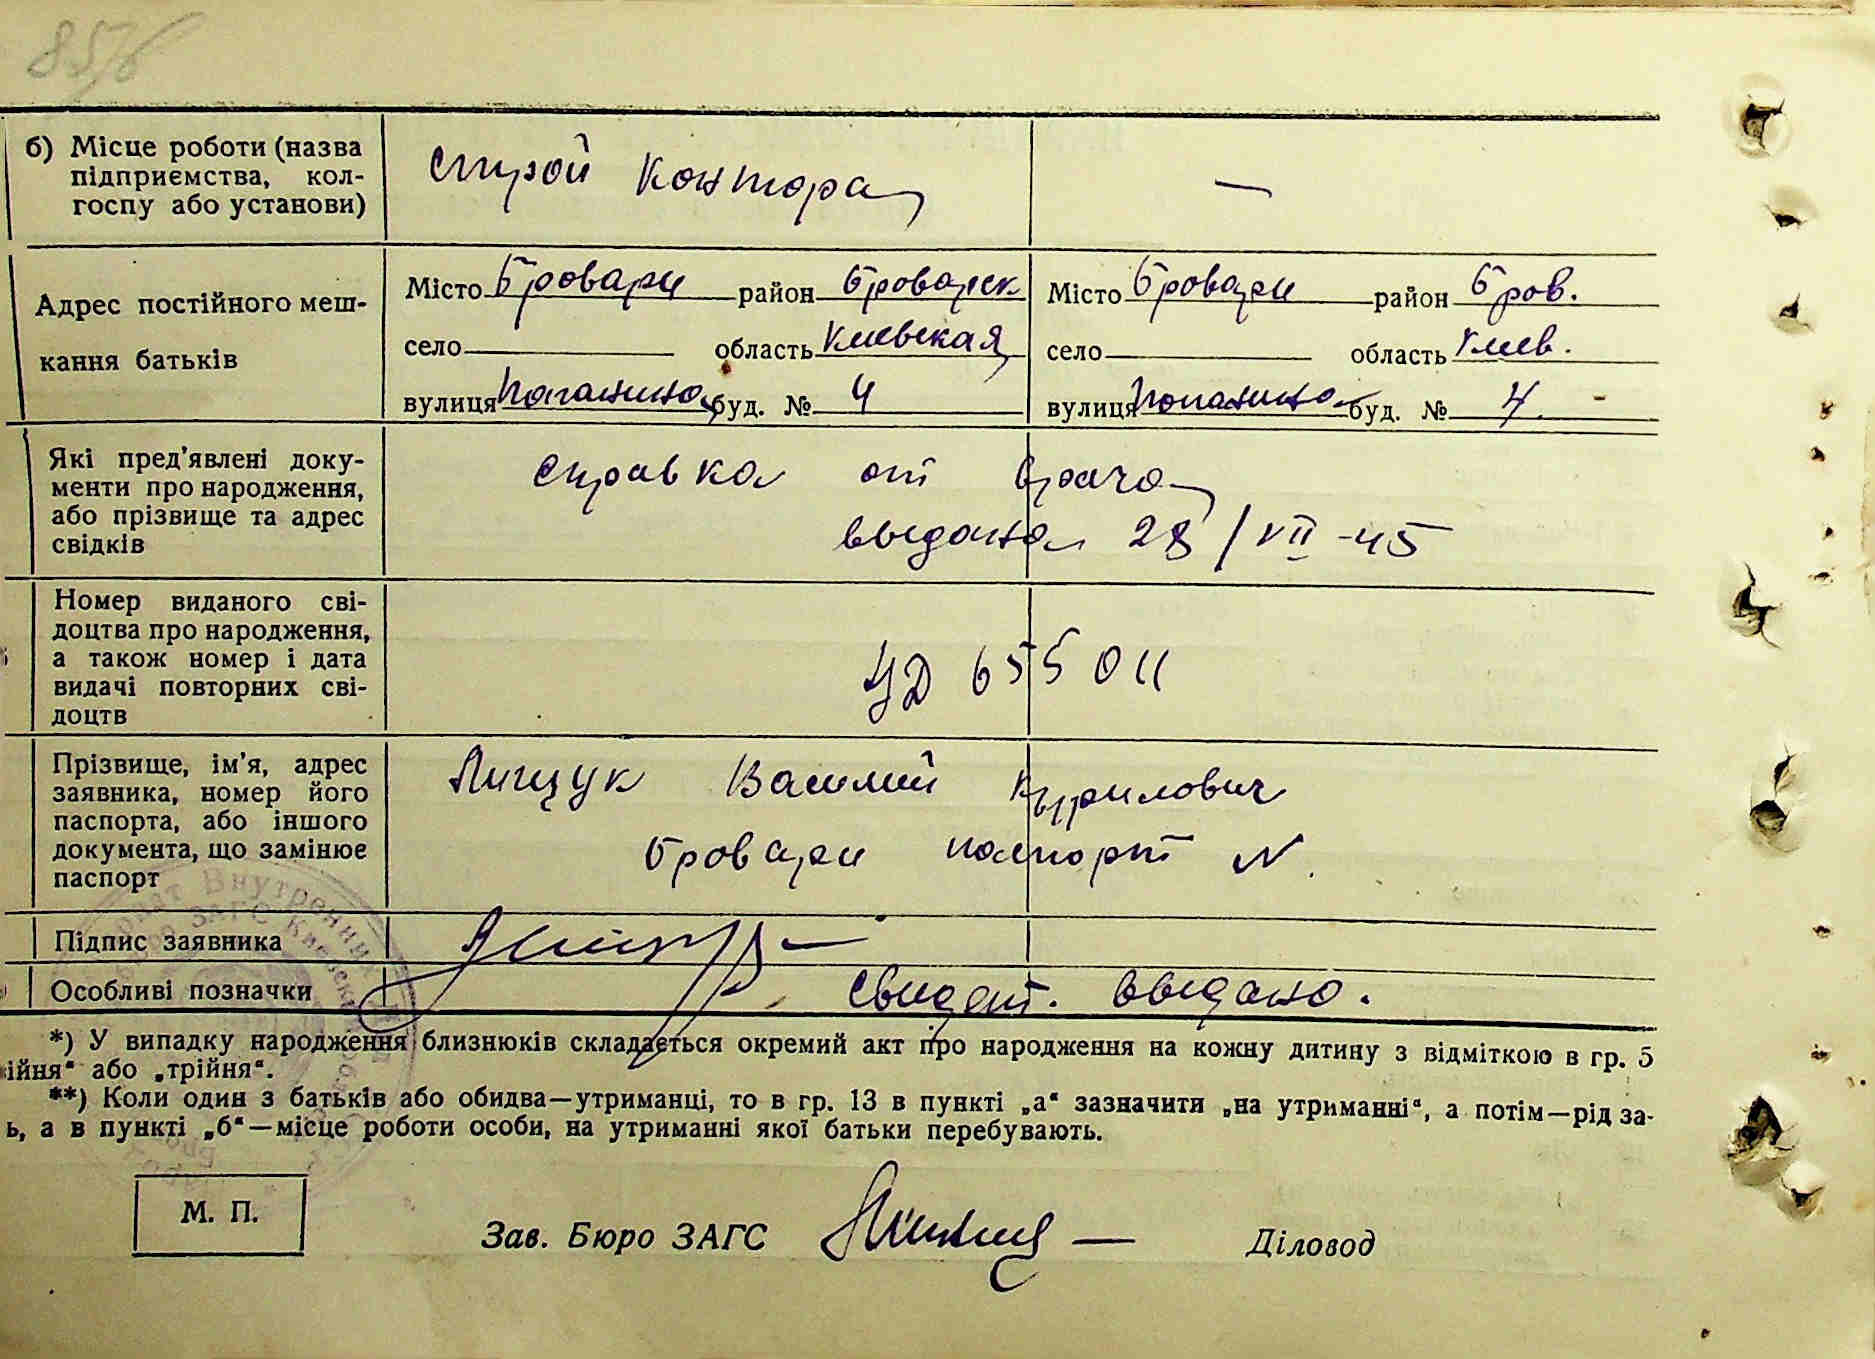 856
б) Місце роботи (назва
підприємства, кол-
госпу або установи)
строй контора
—
Адрес постійного меш-
кання батьків
Місто Бровари район Броварск
село область Киевская
вулиця буд. № 4
Місто Бровари район Бров.
село область Киев.
вулиця буд. № 4
Які пред'явлені доку-
менти про народження,
або прізвище та адрес
свідків
справка от врача
выдана 28/VII-45
Номер виданого сві-
доцтва про народження,
а також номер і дата
видачі повторних сві-
доцтв
УД 655011
Прізвище, ім'я, адрес
заявника, номер його
паспорта, або іншого
документа, що замінює
паспорт
Лищук Василий Кырилович
Бровари паспорт N.
Підпис заявника
Особливі позначки
свидет. выдано.
*) У випадку народження близнюків складається окремий акт про народження на кожну дитину з відміткою в гр. 5
ійня“ або „трійня“.
**) Коли один з батьків або обидва—утриманці, то в гр. 13 в пункті „а“ зазначити „на утриманні“, а потім—рід за-
ь, а в пункті „б“—місце роботи особи, на утриманні якої батьки перебувають.
М. П.
Зав. Бюро ЗАГС
Діловод